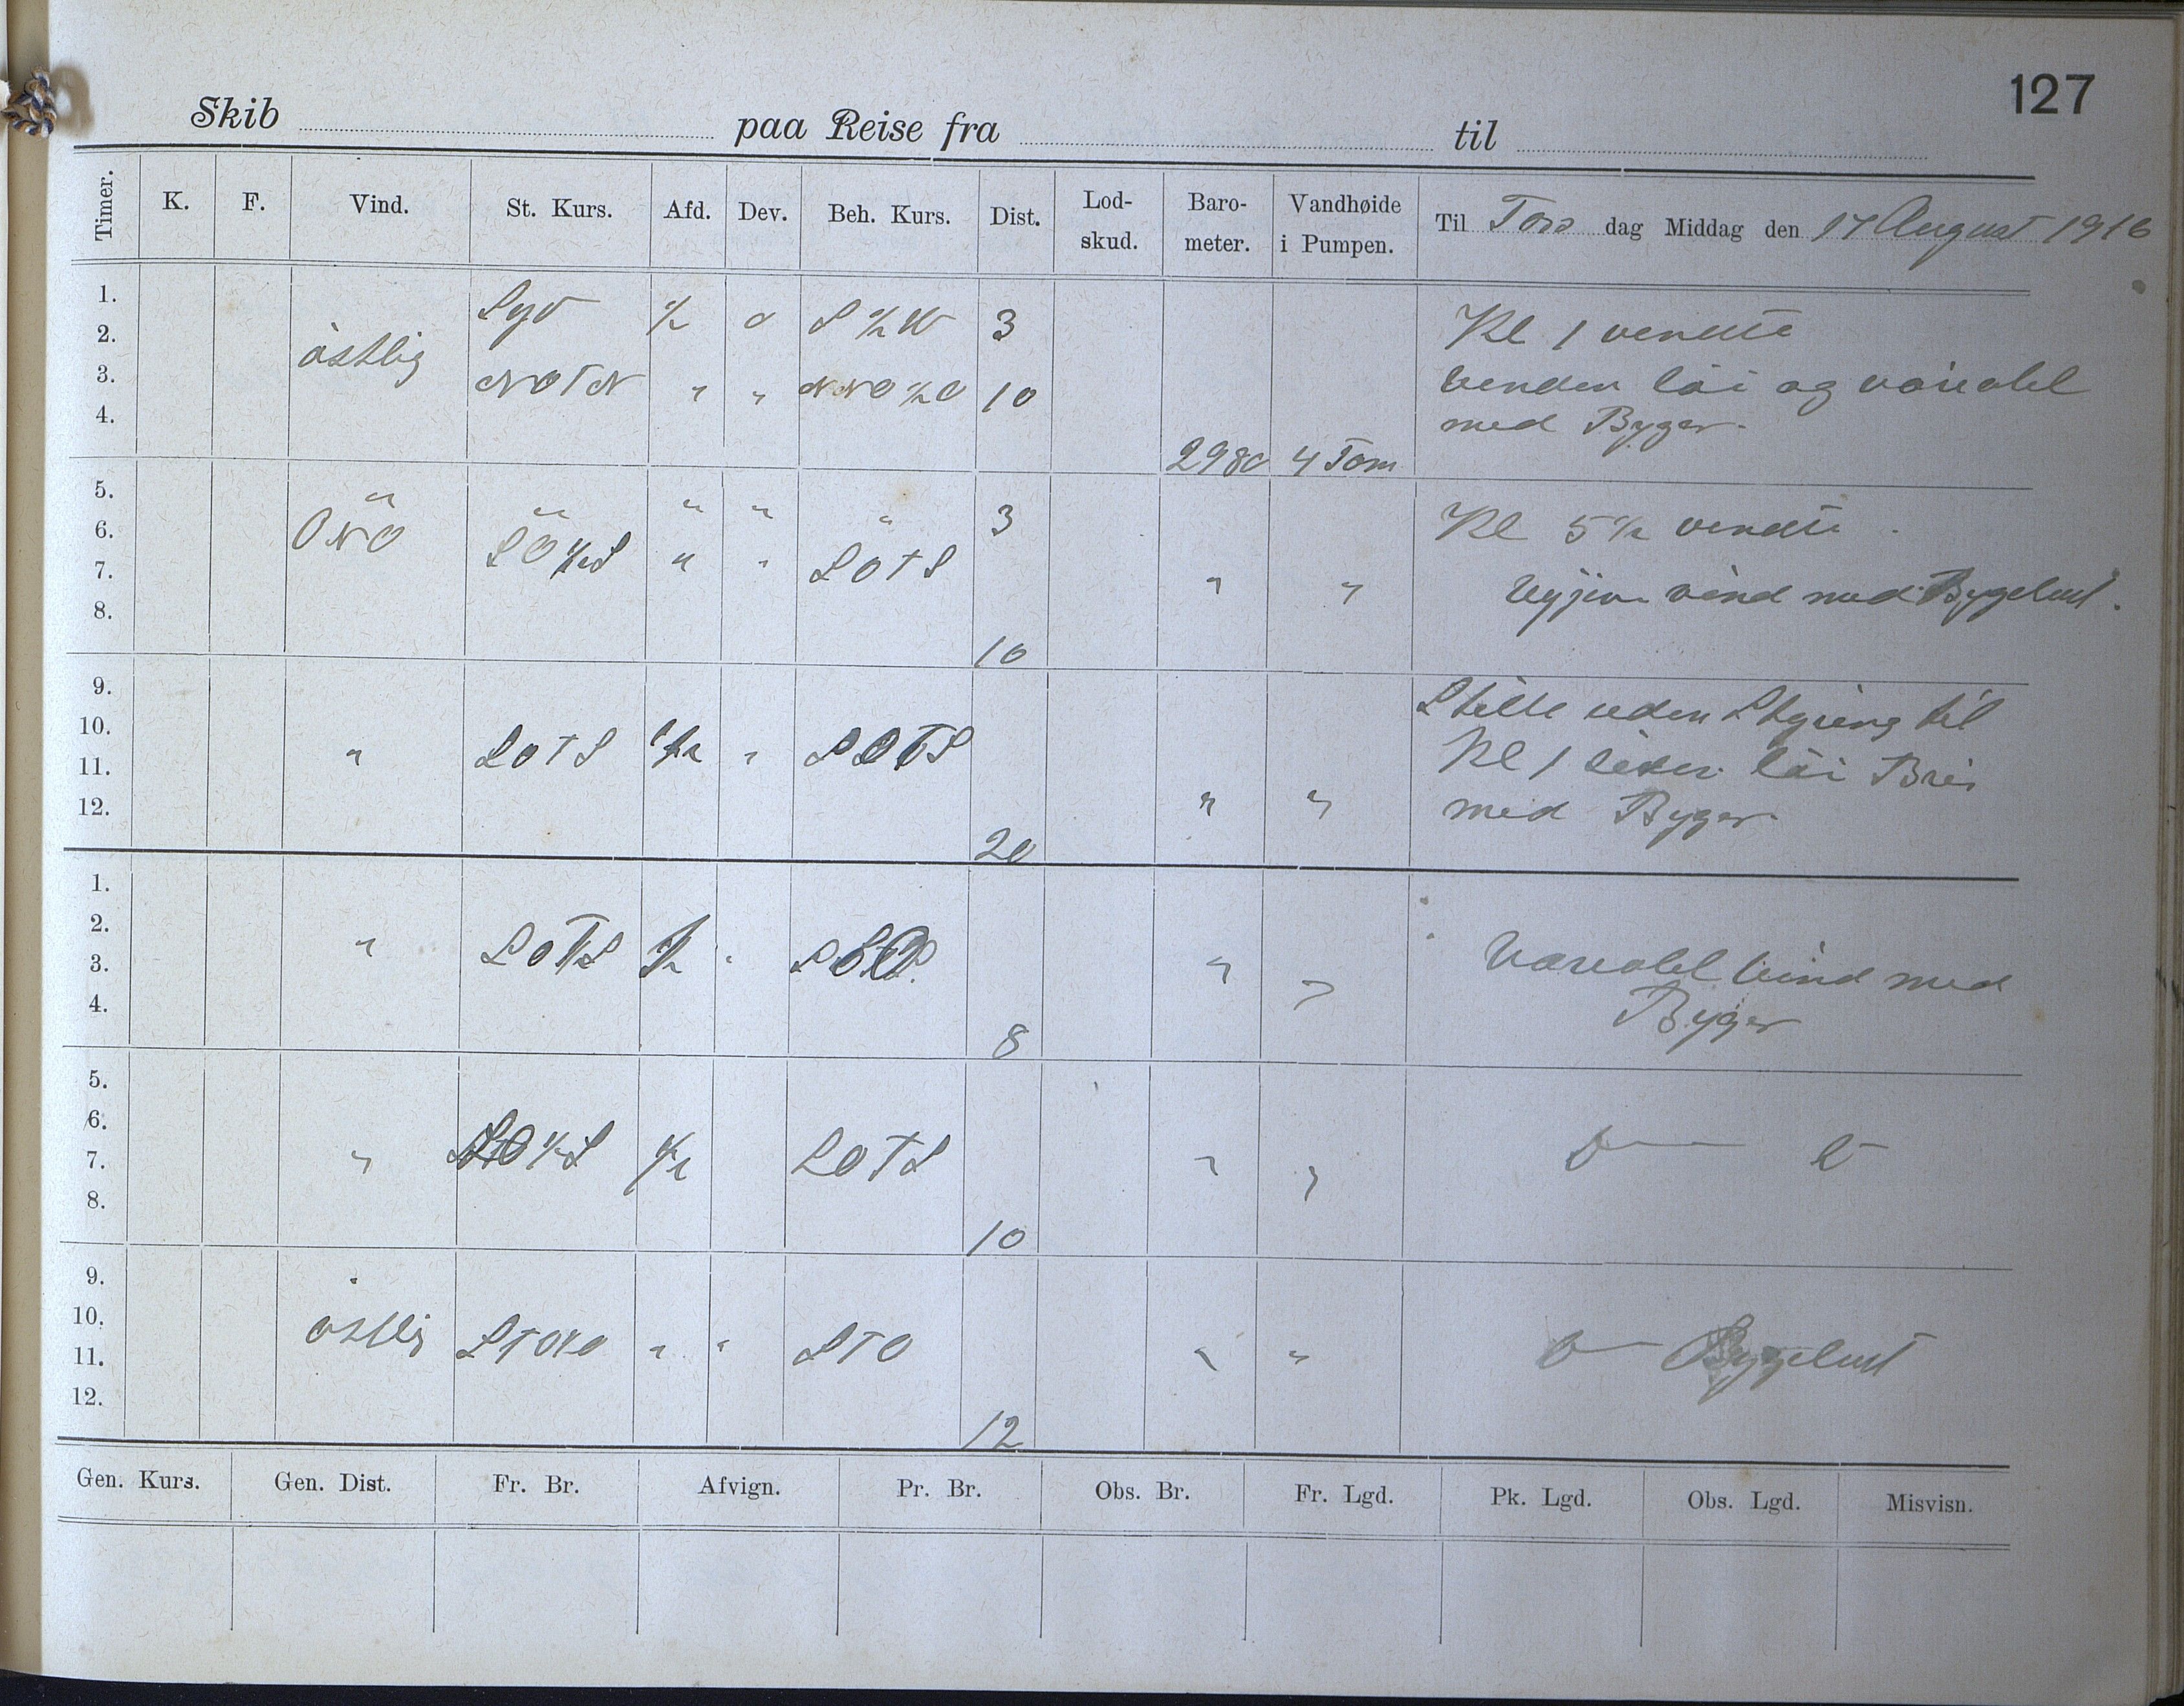 127
Skib paa Reise fra til
Timer. K. F. Vind. St. Kurs. Afd. Dev. Beh. Kurs. Dist. Lod-skud. Baro-meter. Vandhøide i Pumpen. Til Tors dag Middag den 17 August 1916
1. Syd ½ 0 S ½ W 3 Kl 1 vendte
2. östlig
3. NOTN " " NNO ½ O 10 Vinden löi og variabel
4. med Byger.
2980 4 Tom
5. " " " " " 3 Kl 5 ½ vendte
6. ONO SO ½ S " " SOTS
7. " " vind med Bygeluft.
8.
10
9. Stille uden Styring til
10. " SOTS ½ " SOTS Kl 1 siden löi Bris
11. " " med Byger
12.
20
1.
2. " ½ " Variabel Vind med
3. " " Byger
4.
8
5.
6. " SO ½ S ½ SOTS
7. " "
8.
10
9.
10. östlig " " STO Bygeluft
11. " "
12.
12
Gen. Kurs. Gen. Dist. Fr. Br. Afvign. Pr. Br. Obs. Br. Fr. Lgd. Pk. Lgd. Obs. Lgd. Misvisn.